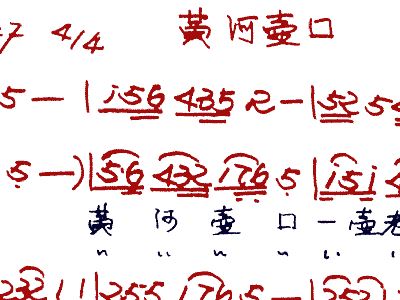 4/4 黄河壶口
5 — | i·56 435 2 — | 52 5
5 —) | 5·6 432 i76 5 | i5i
黄 河 壶 口 一 壶老
" " " " " "
232 1 | 255 i76 5 — | 252